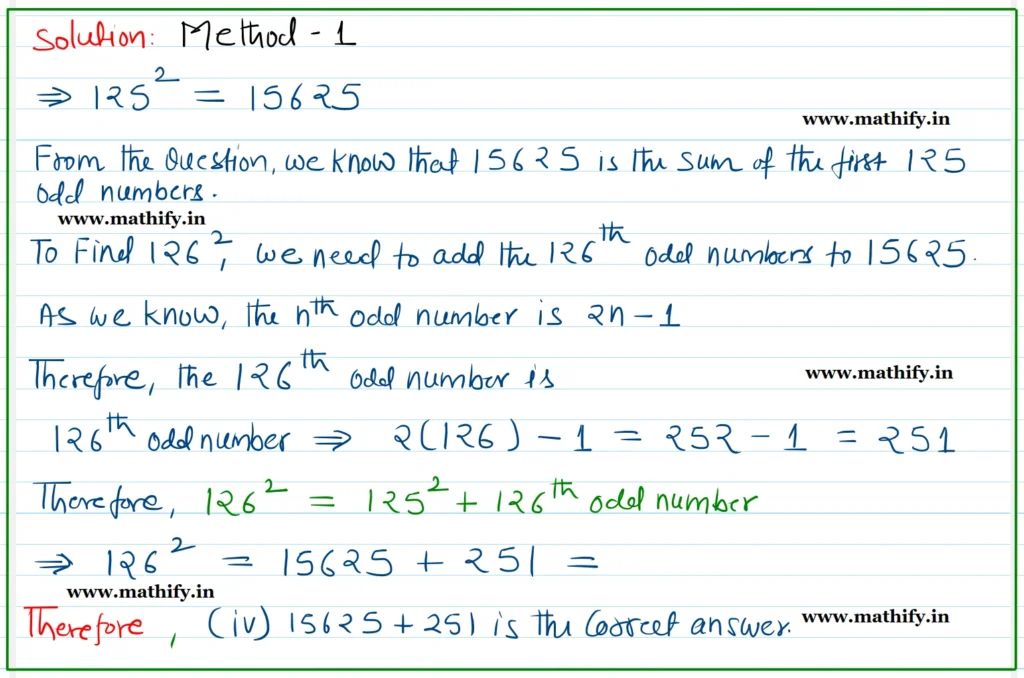 Solution: Method - 1
⇒ 125² = 15625
www.mathify.in
From the Question, we know that 15625 is the sum of the first 125
odd numbers.
www.mathify.in
To Find 126², we need to add the 126th odd numbers to 15625.
As we know, the nth odd number is 2n - 1
Therefore, the 126th odd number is
www.mathify.in
126th odd number ⇒ 2(126) - 1 = 252 - 1 = 251
Therefore, 126² = 125² + 126th odd number
⇒ 126² = 15625 + 251 =
www.mathify.in
Therefore, (iv) 15625 + 251 is the Correct answer.
www.mathify.in